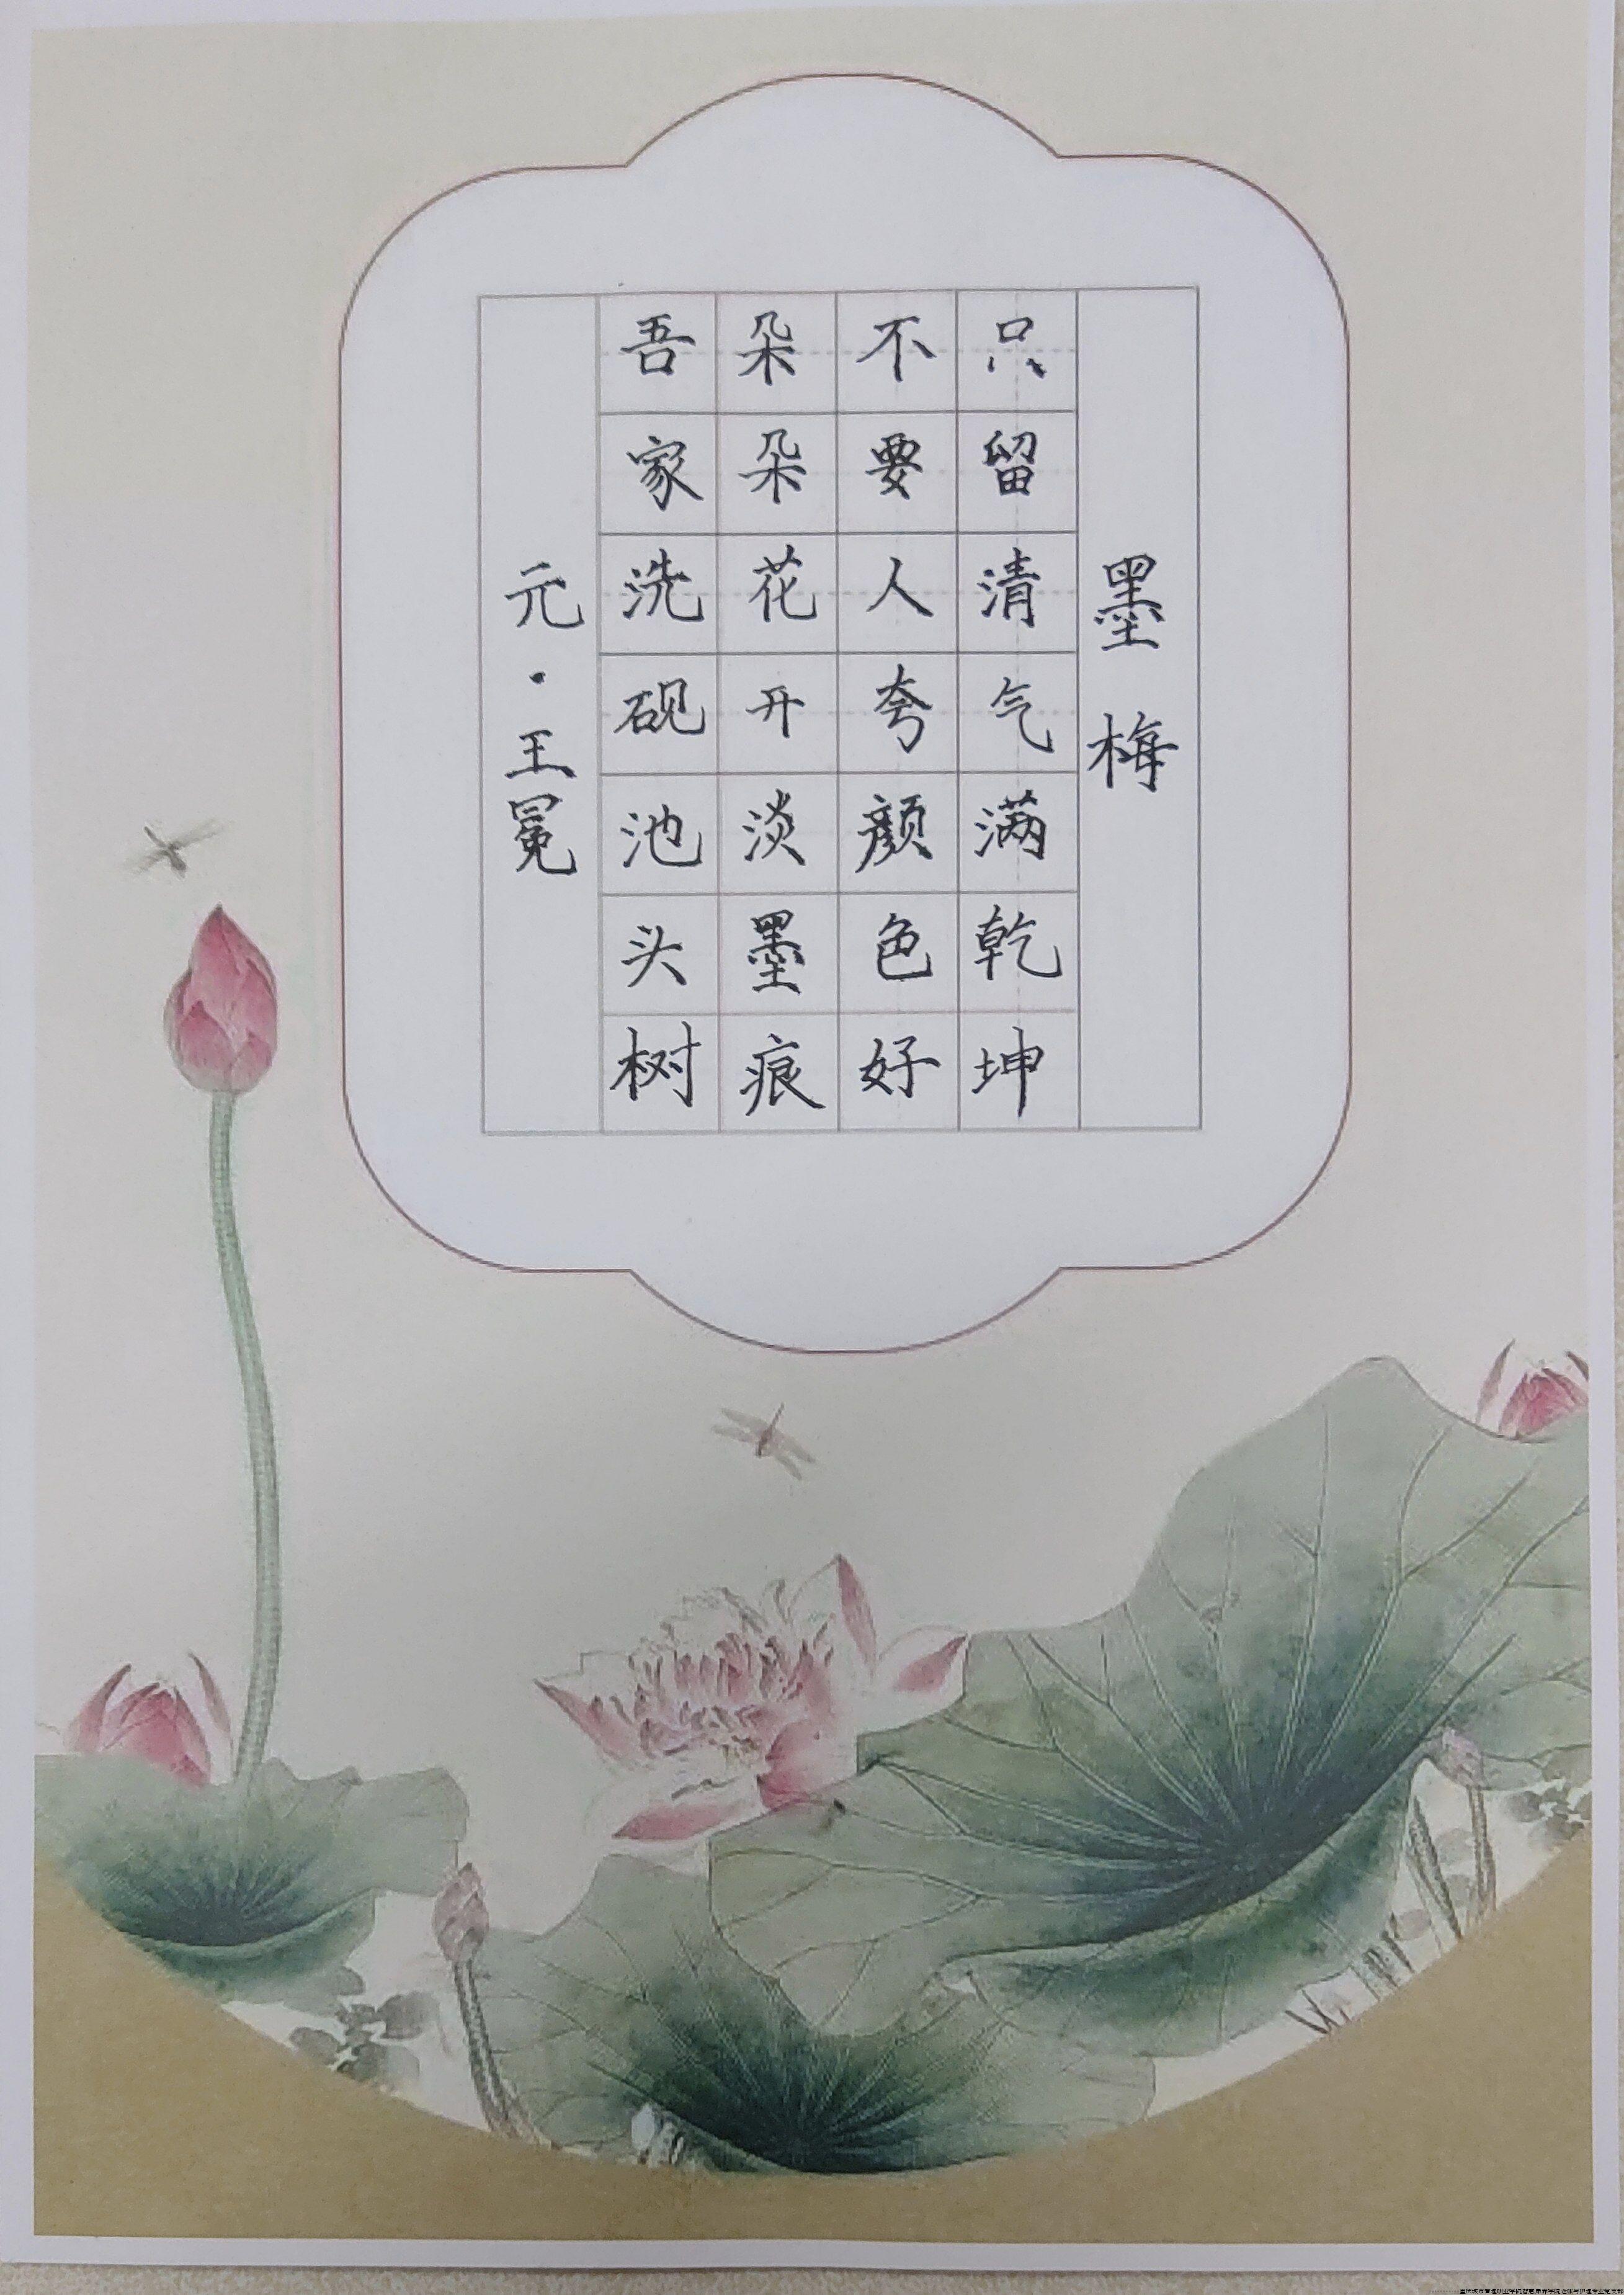 墨梅
只留清气满乾坤
不要人夸颜色好
朵朵花开淡墨痕
吾家洗砚池头树
元·王冕